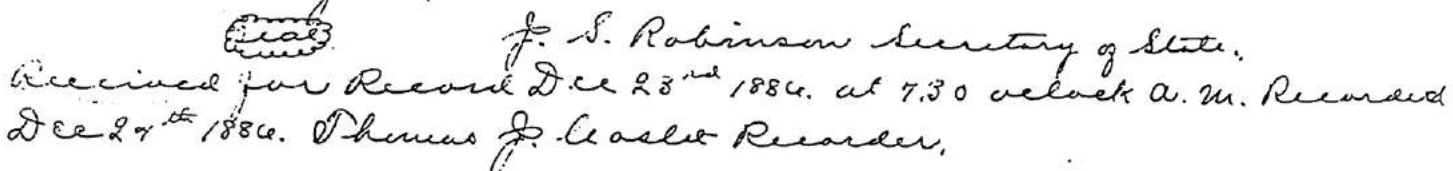 Seal J. S. Robinson Secretary of State.
Received for Record Dec 23rd 1886. at 7.30 oclock A. M. Recorded
Dec 27th 1886. Thomas J. Recorder.